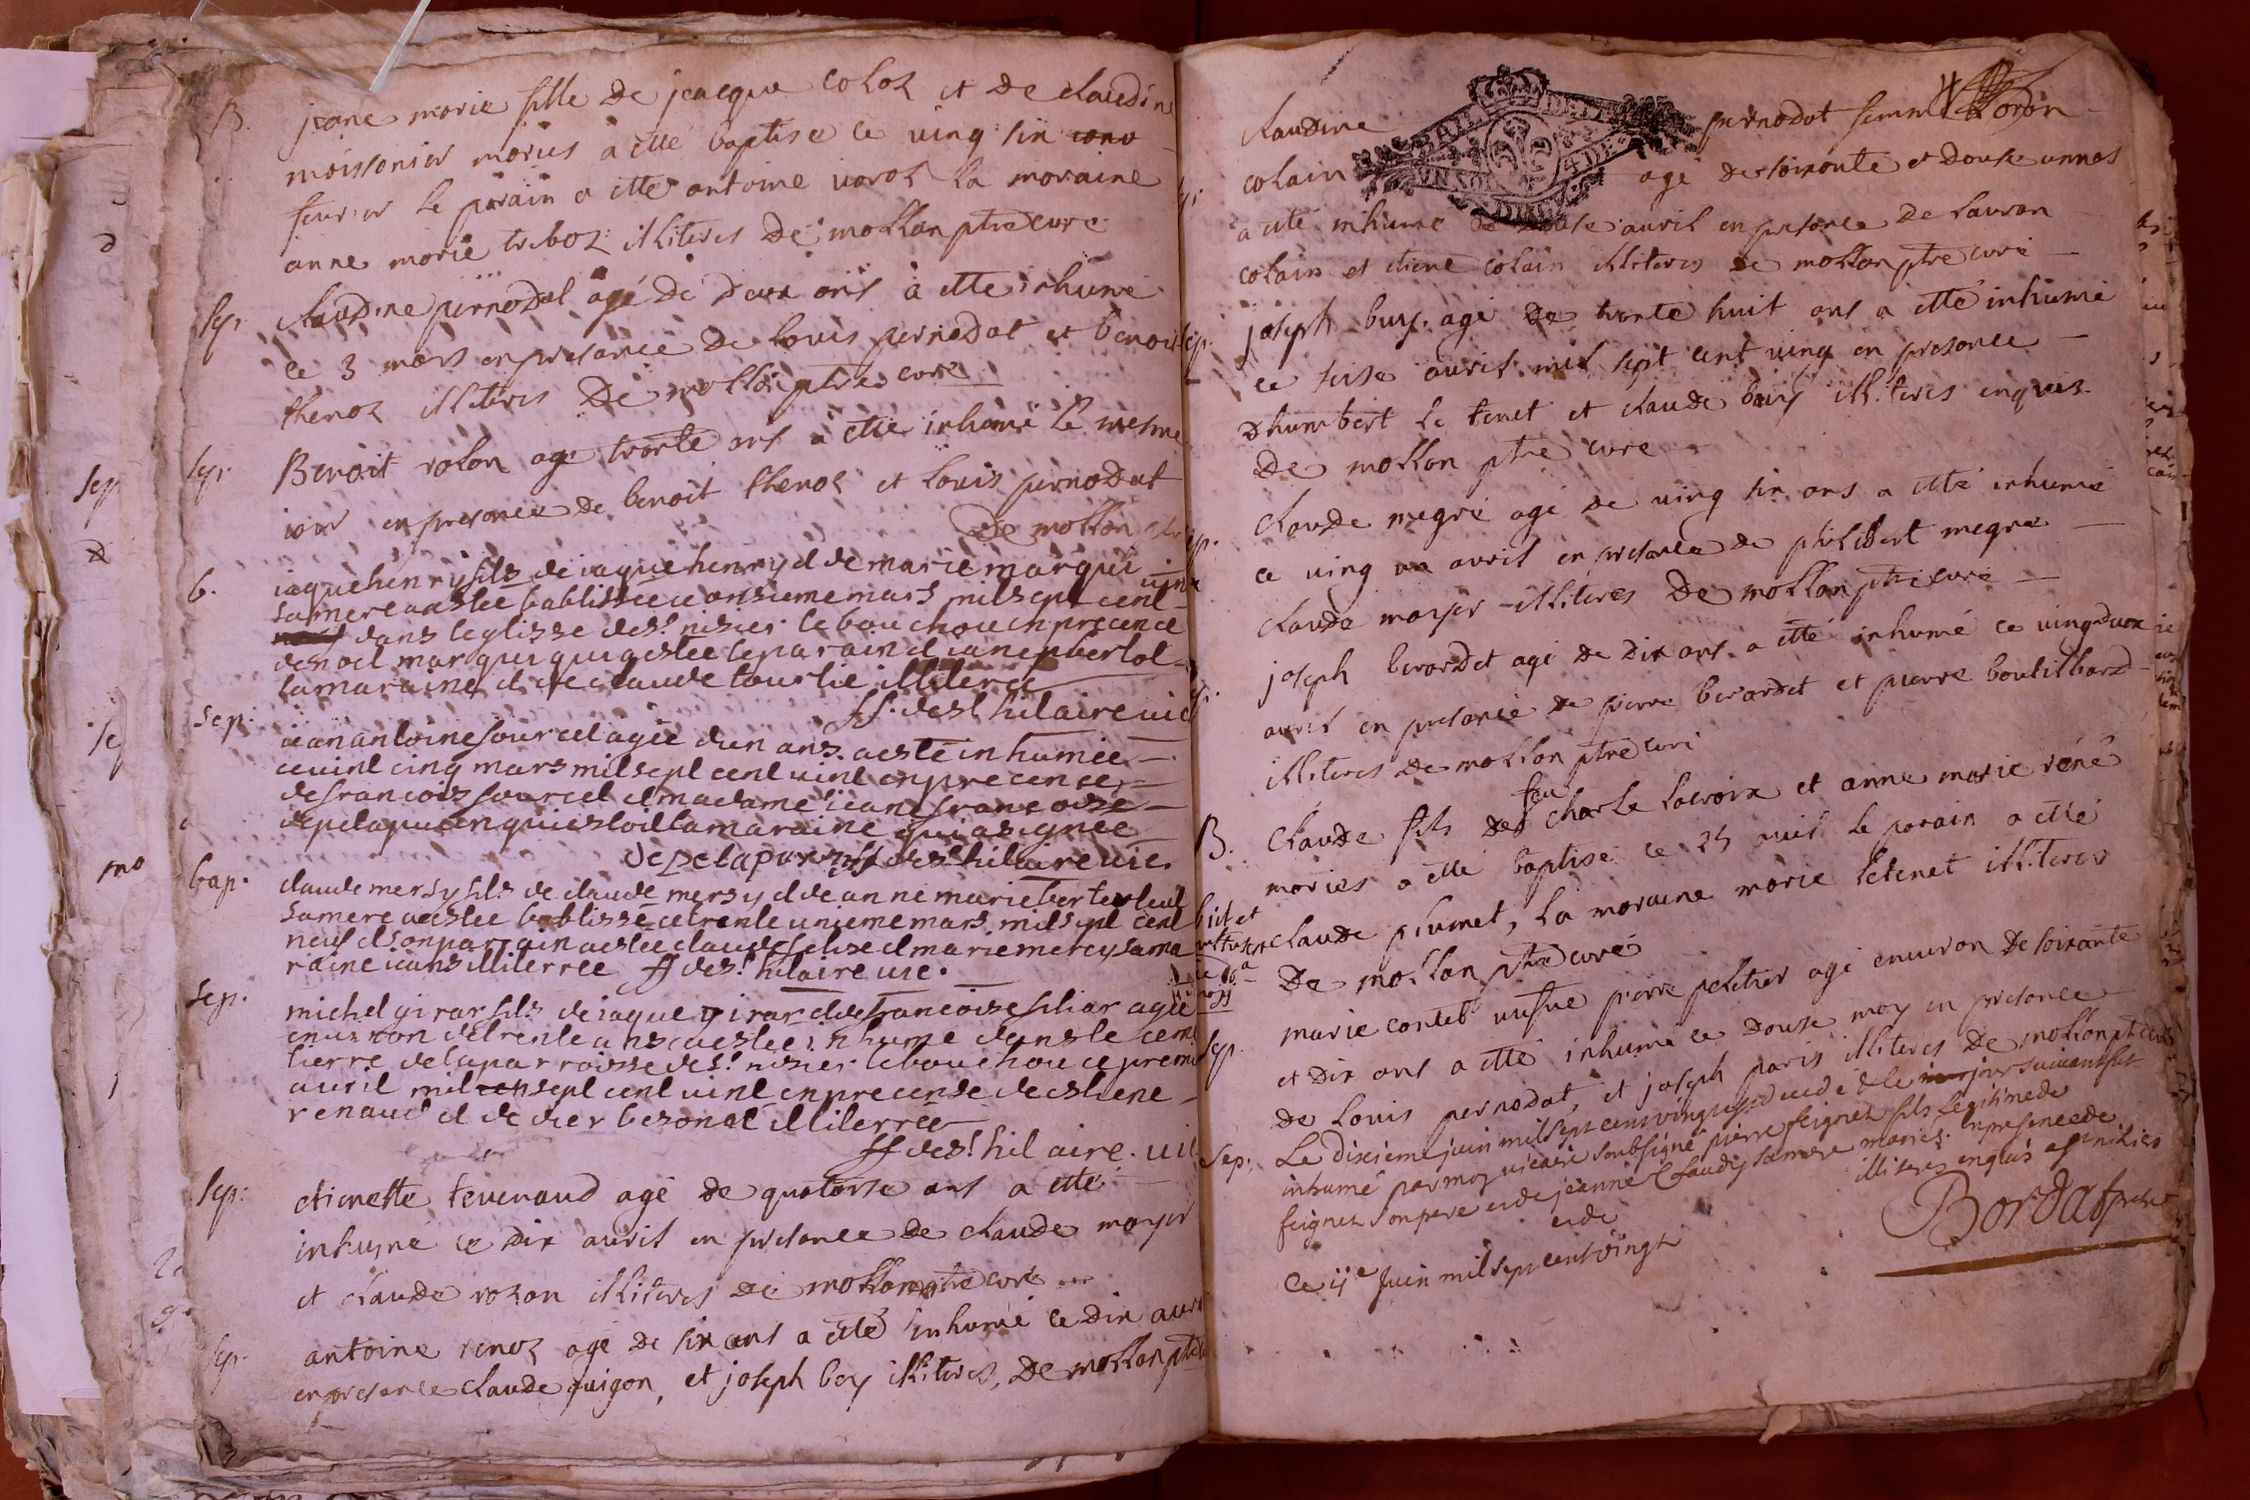 B. jeane marie fille de jeacque coloz et de claudine
moissonier mariés a etté baptisé ce ving six
feurier le parain a etté antoine varoz la moraine
anne marie treboz illiteres De mollan ptre curé
Sep. claudine pernodat agé De deux ans a etté inhumé
ce 3 mars en presance De louis pernodat et benoit
thenoz illiteres De mollan ptre curé
Sep. Benoit rolon agé trante ans a etté inhumé le mesme
iour en presance de benoit thenoz et louis pernodat
De mollan
b. iaque henry fils de iaque henry et de marie marqui
samere aestee babtissee ce onsieme mars mil sept cent vint
dans leglisse de st nisier le bouchou en precence
de noel marqui qui gestee le parain et
la maraine et de claude tourlie illiteree
ff. de st hilaire vic
sep. iean antoine sourcel agée dun ans aeste in humée
ce vint cinq mars mil sept cent vint en precence
de francois sourcel et madame ieane francoise
depelapu en qui estoit la maraine qui a signée
Depelapu ff de st hilaire vic
bap. claude mersy fils de claude mersy et de anne marie
samere aestee bablissé ce trente unieme mars mil sept cent
neuf et son parrain aestee claude et marie mercy sama
raine iians illiterree ff de st hilaire vic.
sep. michel girar fils de iaque girar et de francoise filiar agée
enuiron de trente ans aestee inhumé dans le ceme
tierre de la parroisse de st nisier le bouchou ce premie
auril mil sept cent vint en precense de estiene
renaud et de dier besonet illiterrée
ff de st hilaire. vic
Sep. etienette teuenaud agé de quatorse ans a etté
inhumé ce dix auril en presance de claude moyer
et claude rolon illiteres de mollan ptre curé
Sep. antoine renoz agé de six ans a etté inhumé ce dix auril
en presance claude guigon, et joseph bey illiteres, De mollan ptre
claudine pernodat femme
colain agé de soixante et douse annas
a eté inhumé ce douse auril en presance De lauran
colain et etiene colain illiteres de mollan ptre curé
Sep. joseph buy. agé de trante huit ans a etté inhumé
ce seise auril mil sept cent ving en presance
Dhumbert le tenet et claude buy illiteres enquis
De mollan ptre curé
Sep. claude megré agé de ving six ans a etté inhumé
ce ving un auril en presance de philibert megre
claude moyer illiteres De mollan ptre curé
joseph berardet agé de Dix ans a etté inhumé ce ving deux
auril en presance de pierre berardet et pierre boutilbard
illiteres De mollan ptre curé
feu
B. claude fils de charle lacroix et anne marie réné
mariés a etté baptisé ce 25 auril le parain a etté
claude plumet, la moraine marie letenet illiteres
De mollan ptre curé
Sep. marie contet uefue pierre peletier agé enuiron De soixante
et dix ans a etté inhumé ce douse may en presance
De louis pernodat, et joseph paris illiteres De mollan ptre curé
Sep. Le dixieme juin mil sept cent vingt est decedé & le jour suivant fut
inhumé par moy vicaire soubsigné pierre feignet fils legitime de
feignet son pere et de jeanne Claudy sa mere mariés. En presence de
et de illiteres enquis a st nisier
Ce 11e Juin mil sept cent vingt
Bordat pretre